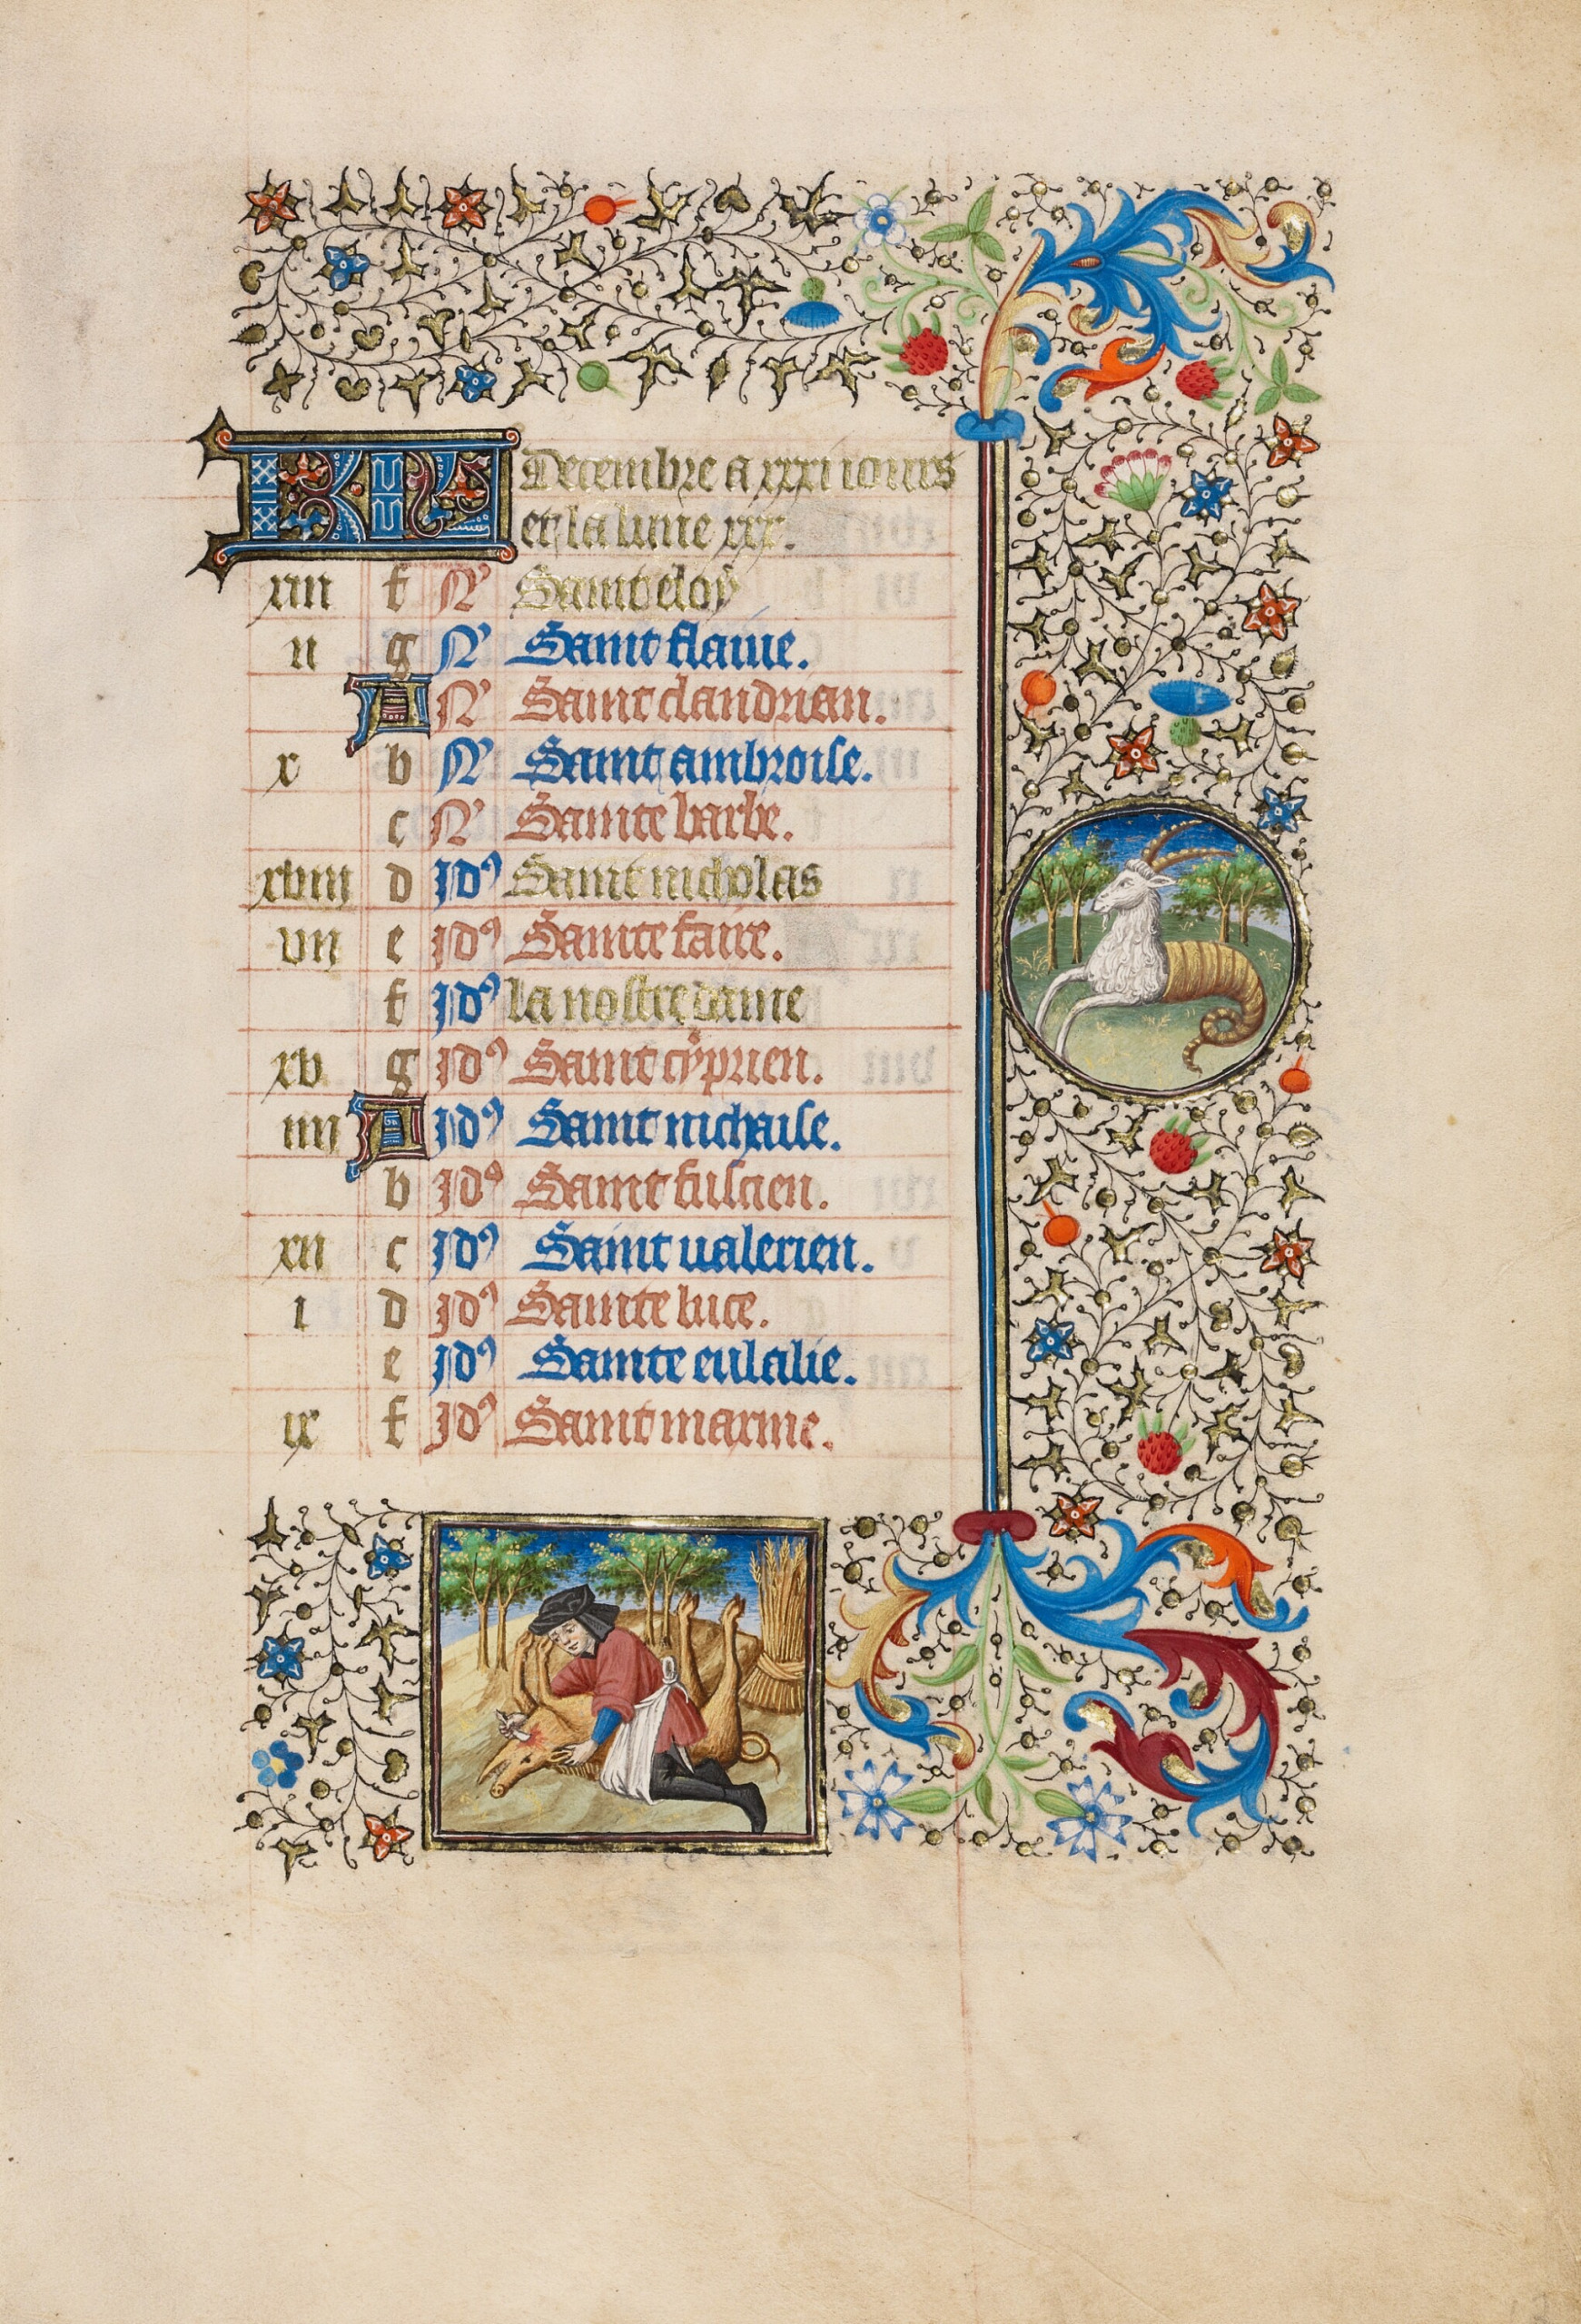 KL Decembre a xxxi iours
et la lune xxx.
xiii f N' Saint eloy
ii g N' Saint flaiue.
A N' Saint claudrian.
x b N' Saint ambroise.
c N' Sainte barbe.
xviii d Id' Saint nicholas
vii e Id' Sainte faire.
f Id' la nostre dame
xv g Id' Saint cyprien.
iiii A Id' Saint nichaise.
b Id' Saint fuscien.
xii c Id' Saint valerien.
i d Id' Sainte luce.
e Id' Sainte eulalie.
ix f Id' Saint maxime.